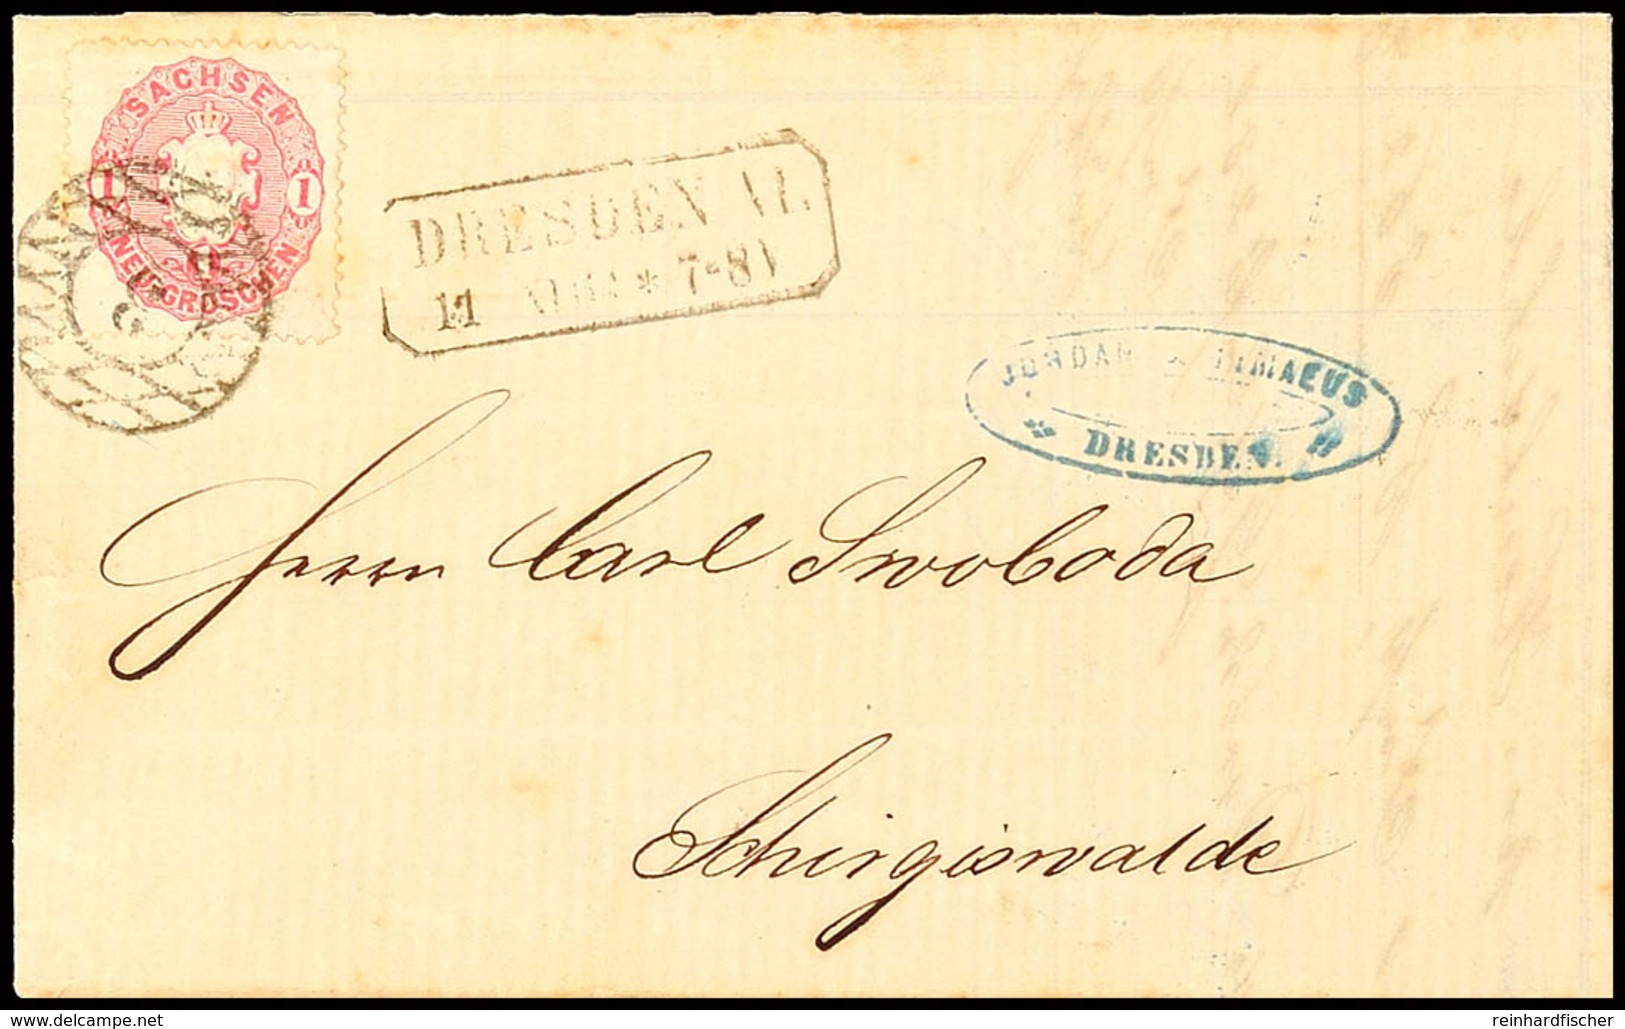 SACHSEN
1 1
NEU-GROSCHEN
DRESDEN
11 * 7-8
JORDAN & TIMAEUS
DRESDEN.
Herrn Carl Swoboda
Schirgiswalde
www.delcampe.net
reinhardfischer